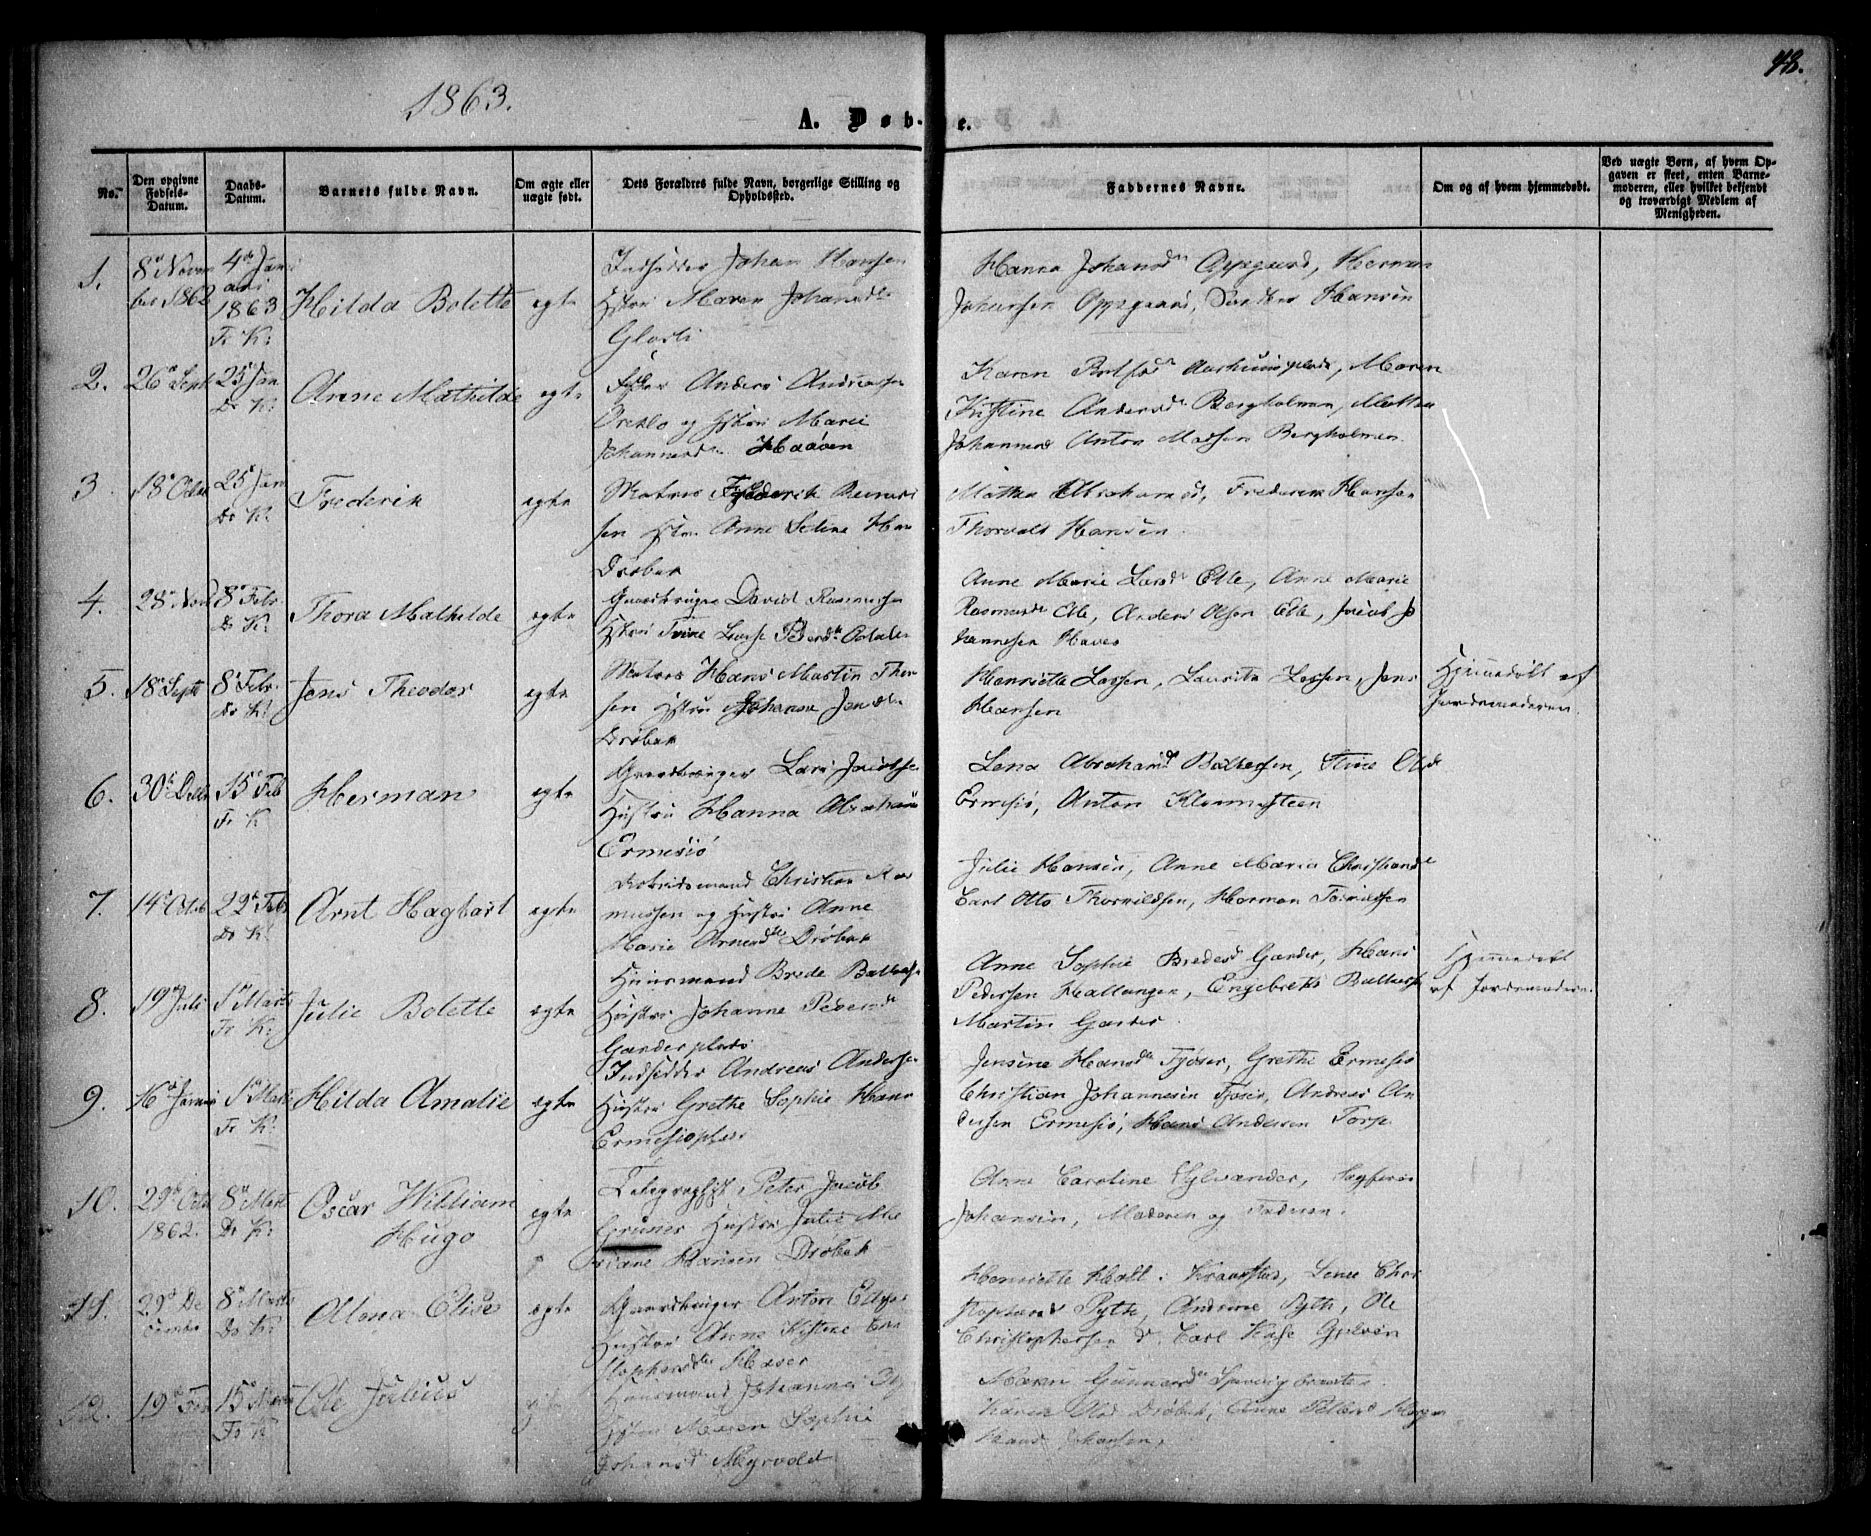 1863.
48.
A. Døbte.
No.
Den opgivne Fødsels-Datum.
Daabs-Datum.
Barnets fulde Navn.
Om ægte eller uægte født.
Dets Forældres fulde Navn, borgerlige Stilling og Opholdssted.
Faddernes Navne.
Om og af hvem hjemmedøbt.
Ved uægte Børn, af hvem Opgaven er skeet, enten Barnemoderen, eller hvilket bekjendt og troværdigt Medlem af Menigheden.
1.
8de Novem
ber 1862
4de Janu
ari
1863
Fr K:
Hilda Bolette
egte
Indsidder Johan Hansen
Hstru Maren Johansdtr
Glasli
Hanna Johansdtr Oppegaard, Herman
Johansen Oppegaard, Hansen
2.
26de Sept
25de Jan
Dr K:
Anne Mathilde
egte
Anders Andreasen
og Hstru Marie
Johannesdtr Haaven
Karen Aarhuusplads, Maren
Kistine Andersdtr Bergholmen, Mathea
Johannesd Anton Madsen Bergholmen
3
18de Octbr
25de Jan
Dr K:
Frederik
egte
Matros Frederik
sen Hstru Anne Seline Han
Drøbak
Mathea Abrahamsd, Frederik Hansen
Thorvald Hansen
4.
28de Novb
8de Febr.
Dr K:
Thora Mathilde
egte
Gaardbruger David Rasmussen
Hstru Trine Pedersdtr
Anne Marie Larsdtr Elle, Anne Marie
Rasmusdtr Elle, Anders Olsen Elle, Jacob Jo
hannesen Haver
5.
18de Septb
8de Febr.
Dr K:
Jens Theodor
egte
Matros Hans Martin Thor
sen Hstru Johanne Jensdtr
Drøbak
Henriette Larsen, Laurits Larsen, Jens
Hansen
Hjemmedøbt af
Jordemoderen.
6.
30de Decbr
15de Feb
Fr K
Herman
egte
Gaardbruger Lars Jacobsen
Hustru Hanna Abrahams
Ermesjø
Lena Abrahamsdtr Ballersen, Stine Olsd
Ermesjø, Anton Klommesteen
7.
14de Octob
22de Feb
Dr K:
Arnt Hagbart
egte
Arbeidsmand Christian Ras
mussen og Hustru Anne
Marie Arnesdtr Drøbak
Julie Hansen, Anne Maria Christiansdtr
Carl Otto Thorvildsen, Herman Torvildsen
8.
19de Juli
1de Marts
Fr K:
Julie Bolette
egte
Huusmand Brede Baltersen
Hustru Johanne Pedersdtr
Garderplads
Anne Sophie Bredesd Garder, Hans
Pedersen Hallangen, Engebreth Baltersen
Martin Garder.
Hjemmedøbt
af Jordemoderen.
9.
16de Januar
1de Marts
Fr K:
Hilda Amalie
egte
Indsidder Andreas Andersen
Hustru Grethe Sophie Hans
Ermesjøplads
Jensine Hansdtr Tjøser, Grethe Ermesjø
Christian Johannesen Tjøser, Andreas An
dersen Ermesjø, Hans Andersen Torp
10.
29de Octb
1862.
8de Marts
Dr K:
Oscar William
Hugo
egte
Telegraphist Peter Jacob
Gruner Hustru Julie Ma
riane Hansen Drøbak
Anne Caroline Sylvander,
Johansen, Moderen og Faderen.
11.
29de De
cember
8de Marts
Dr K:
Alma Elise
egte
Gaardbruger Anton
Hustru Anne Kistine Chri
stophersdtr Haver
Henriette Hall Kraakstad, Lene Chri
stophersd Pyth, Andrine Pyth, Ole
Christophersen d. Carl
12.
19de Feb
15de Marts
Fr K
Ole Julius
Huusmand Johannes
Hstru Maren Sophie
Johansdtr Myrvold
Maren Gunnersdtr
Karen Drøbak, Anne
Johansen,